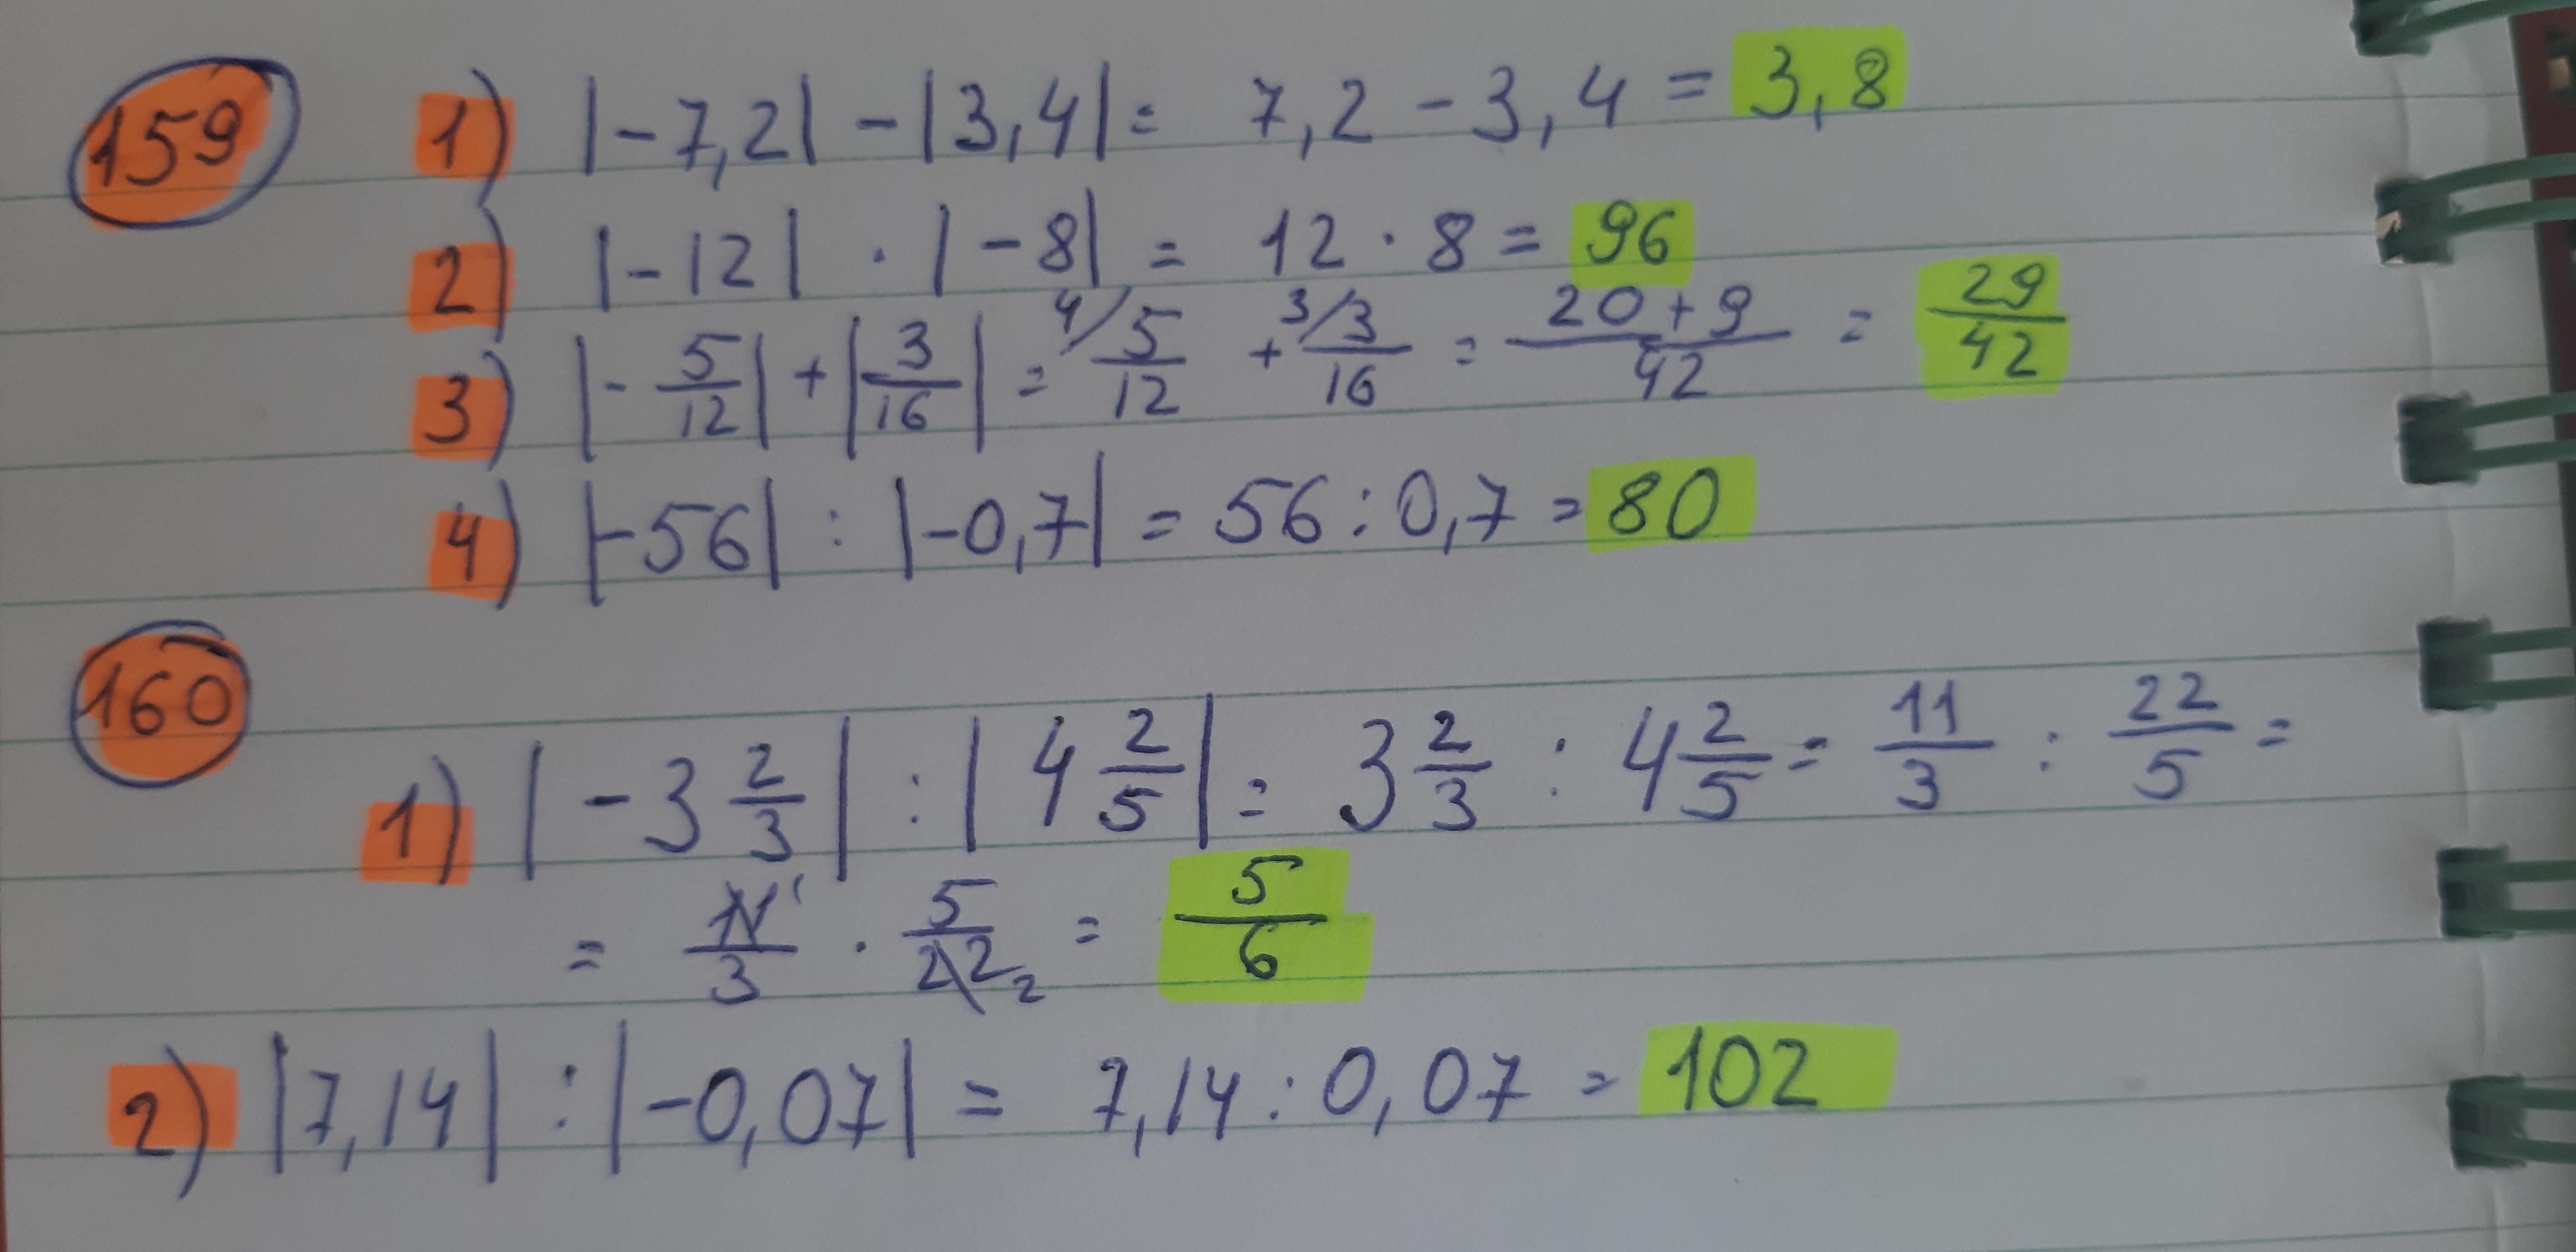 159 1) |-7,2| - |3,4| = 7,2 - 3,4 = 3,8
2) |-12| · |-8| = 12 · 8 = 96
3) |-5/12| + |3/16| = 4/ 5/12 + 3/ 3/16 = (20+9)/42 = 29/42
4) |-56| : |-0,7| = 56 : 0,7 = 80
160
1) |-3 2/3| : |4 2/5| = 3 2/3 : 4 2/5 = 11/3 : 22/5 =
= 11 1/3 · 5/22 2 = 5/6
2) |7,14| : |-0,07| = 7,14 : 0,07 = 102